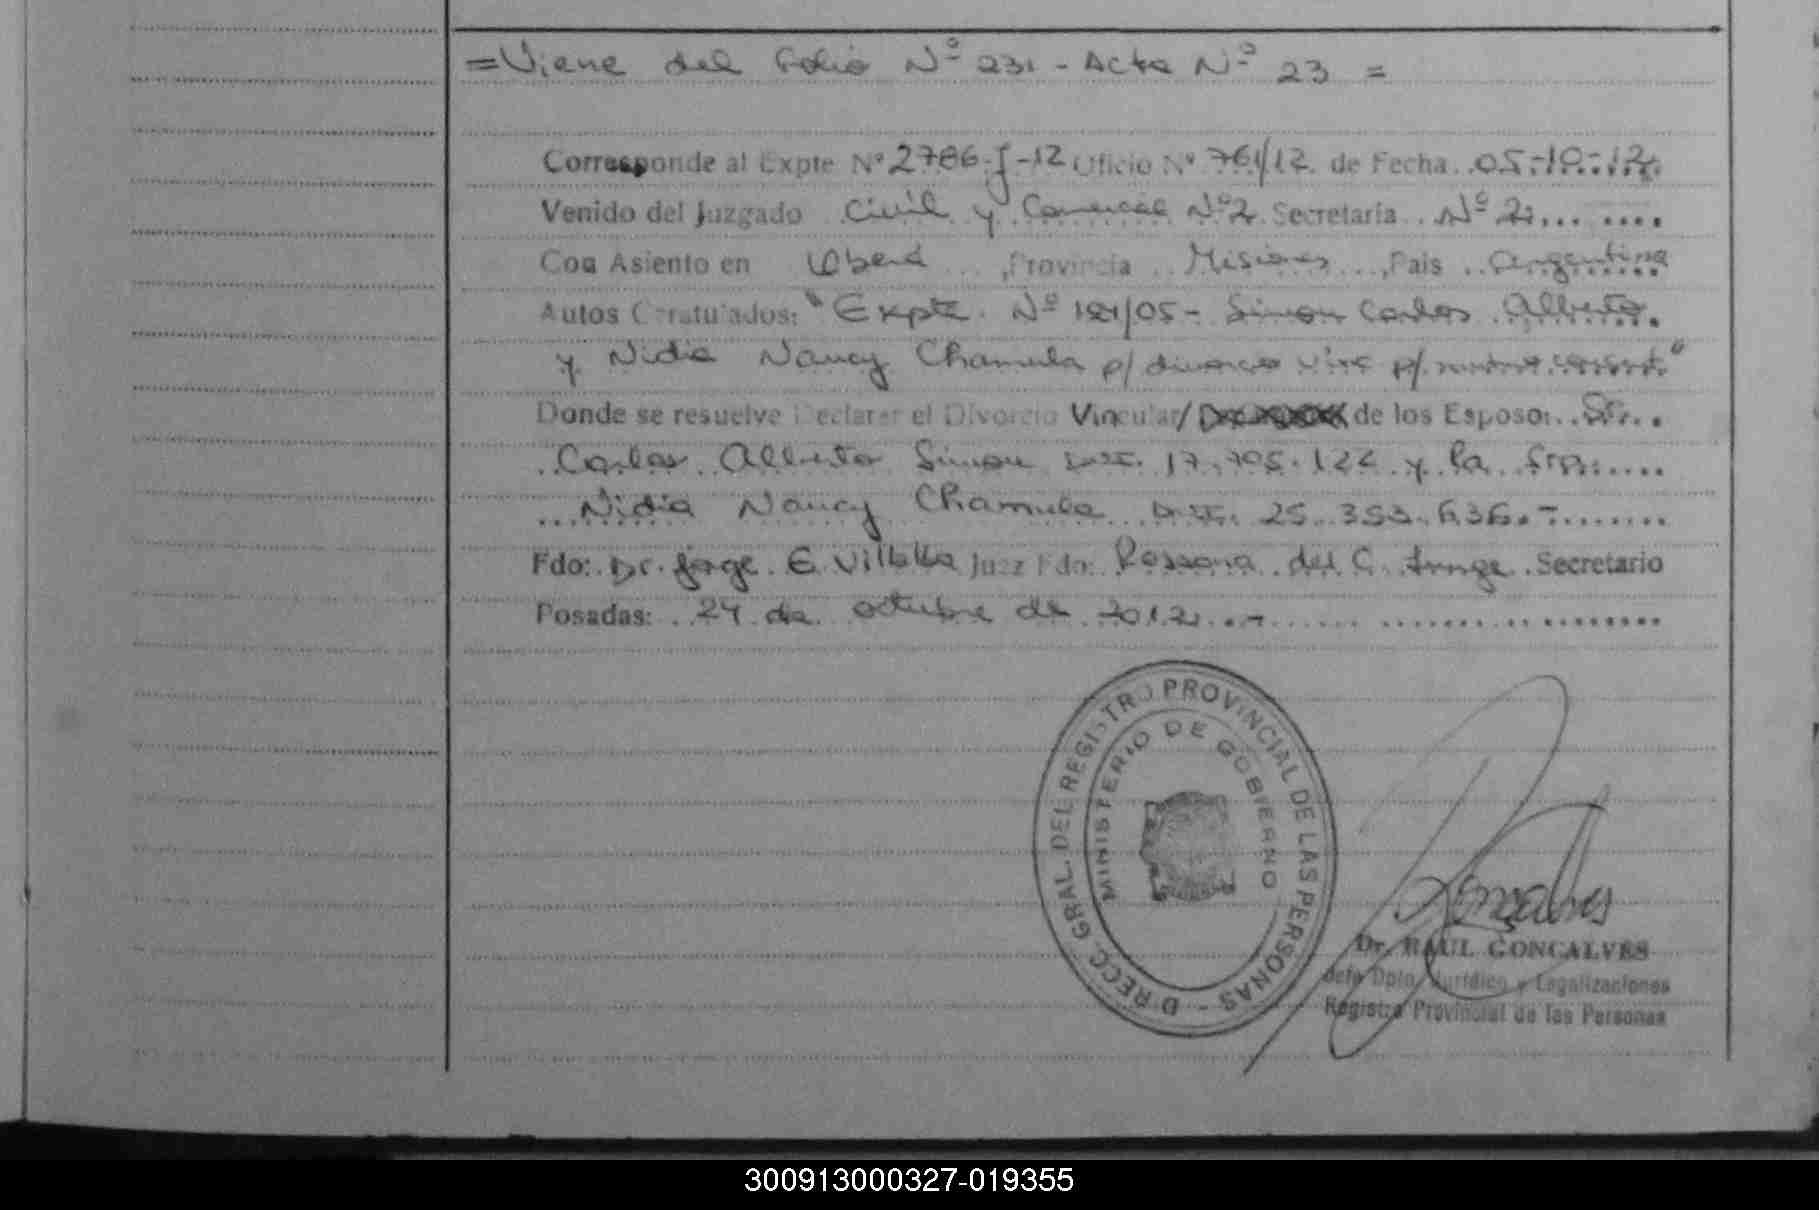 =Viene del Folio Nº 231 - Acta Nº 23 =
Corresponde al Expte Nº 2786-J-12 Oficio Nº 761/12 de Fecha 05-10-12
Venido del Juzgado Civil y Comercial Nº2 Secretaría Nº 2
Con Asiento en Oberá, Provincia Misiones, País Argentina
Autos Caratulados: "Expte. Nº 181/05 - Simon Carlos Alberto
y Nidia Nancy Chamula p/ divorcio vinc p/ mutuo consent."
Donde se resuelve Declarar el Divorcio Vincular/ de los Esposo: Sr.
Carlos Alberto Simon DNI. 17.705.122 y la Sra.
Nidia Nancy Chamula DNI. 25.353.636.-
Fdo: Dr. Jorge E Villalba Juez Fdo: Rossana del C. Secretario
Posadas: 24 de octubre de 2012.-
DIRECC. GRAL. DEL REGISTRO PROVINCIAL DE LAS PERSONAS -
MINISTERIO DE GOBIERNO
Goncalves
Dr. RAUL GONCALVES
Jefe Dpto. Jurídico y Legalizaciones
Registro Provincial de las Personas
300913000327-019355